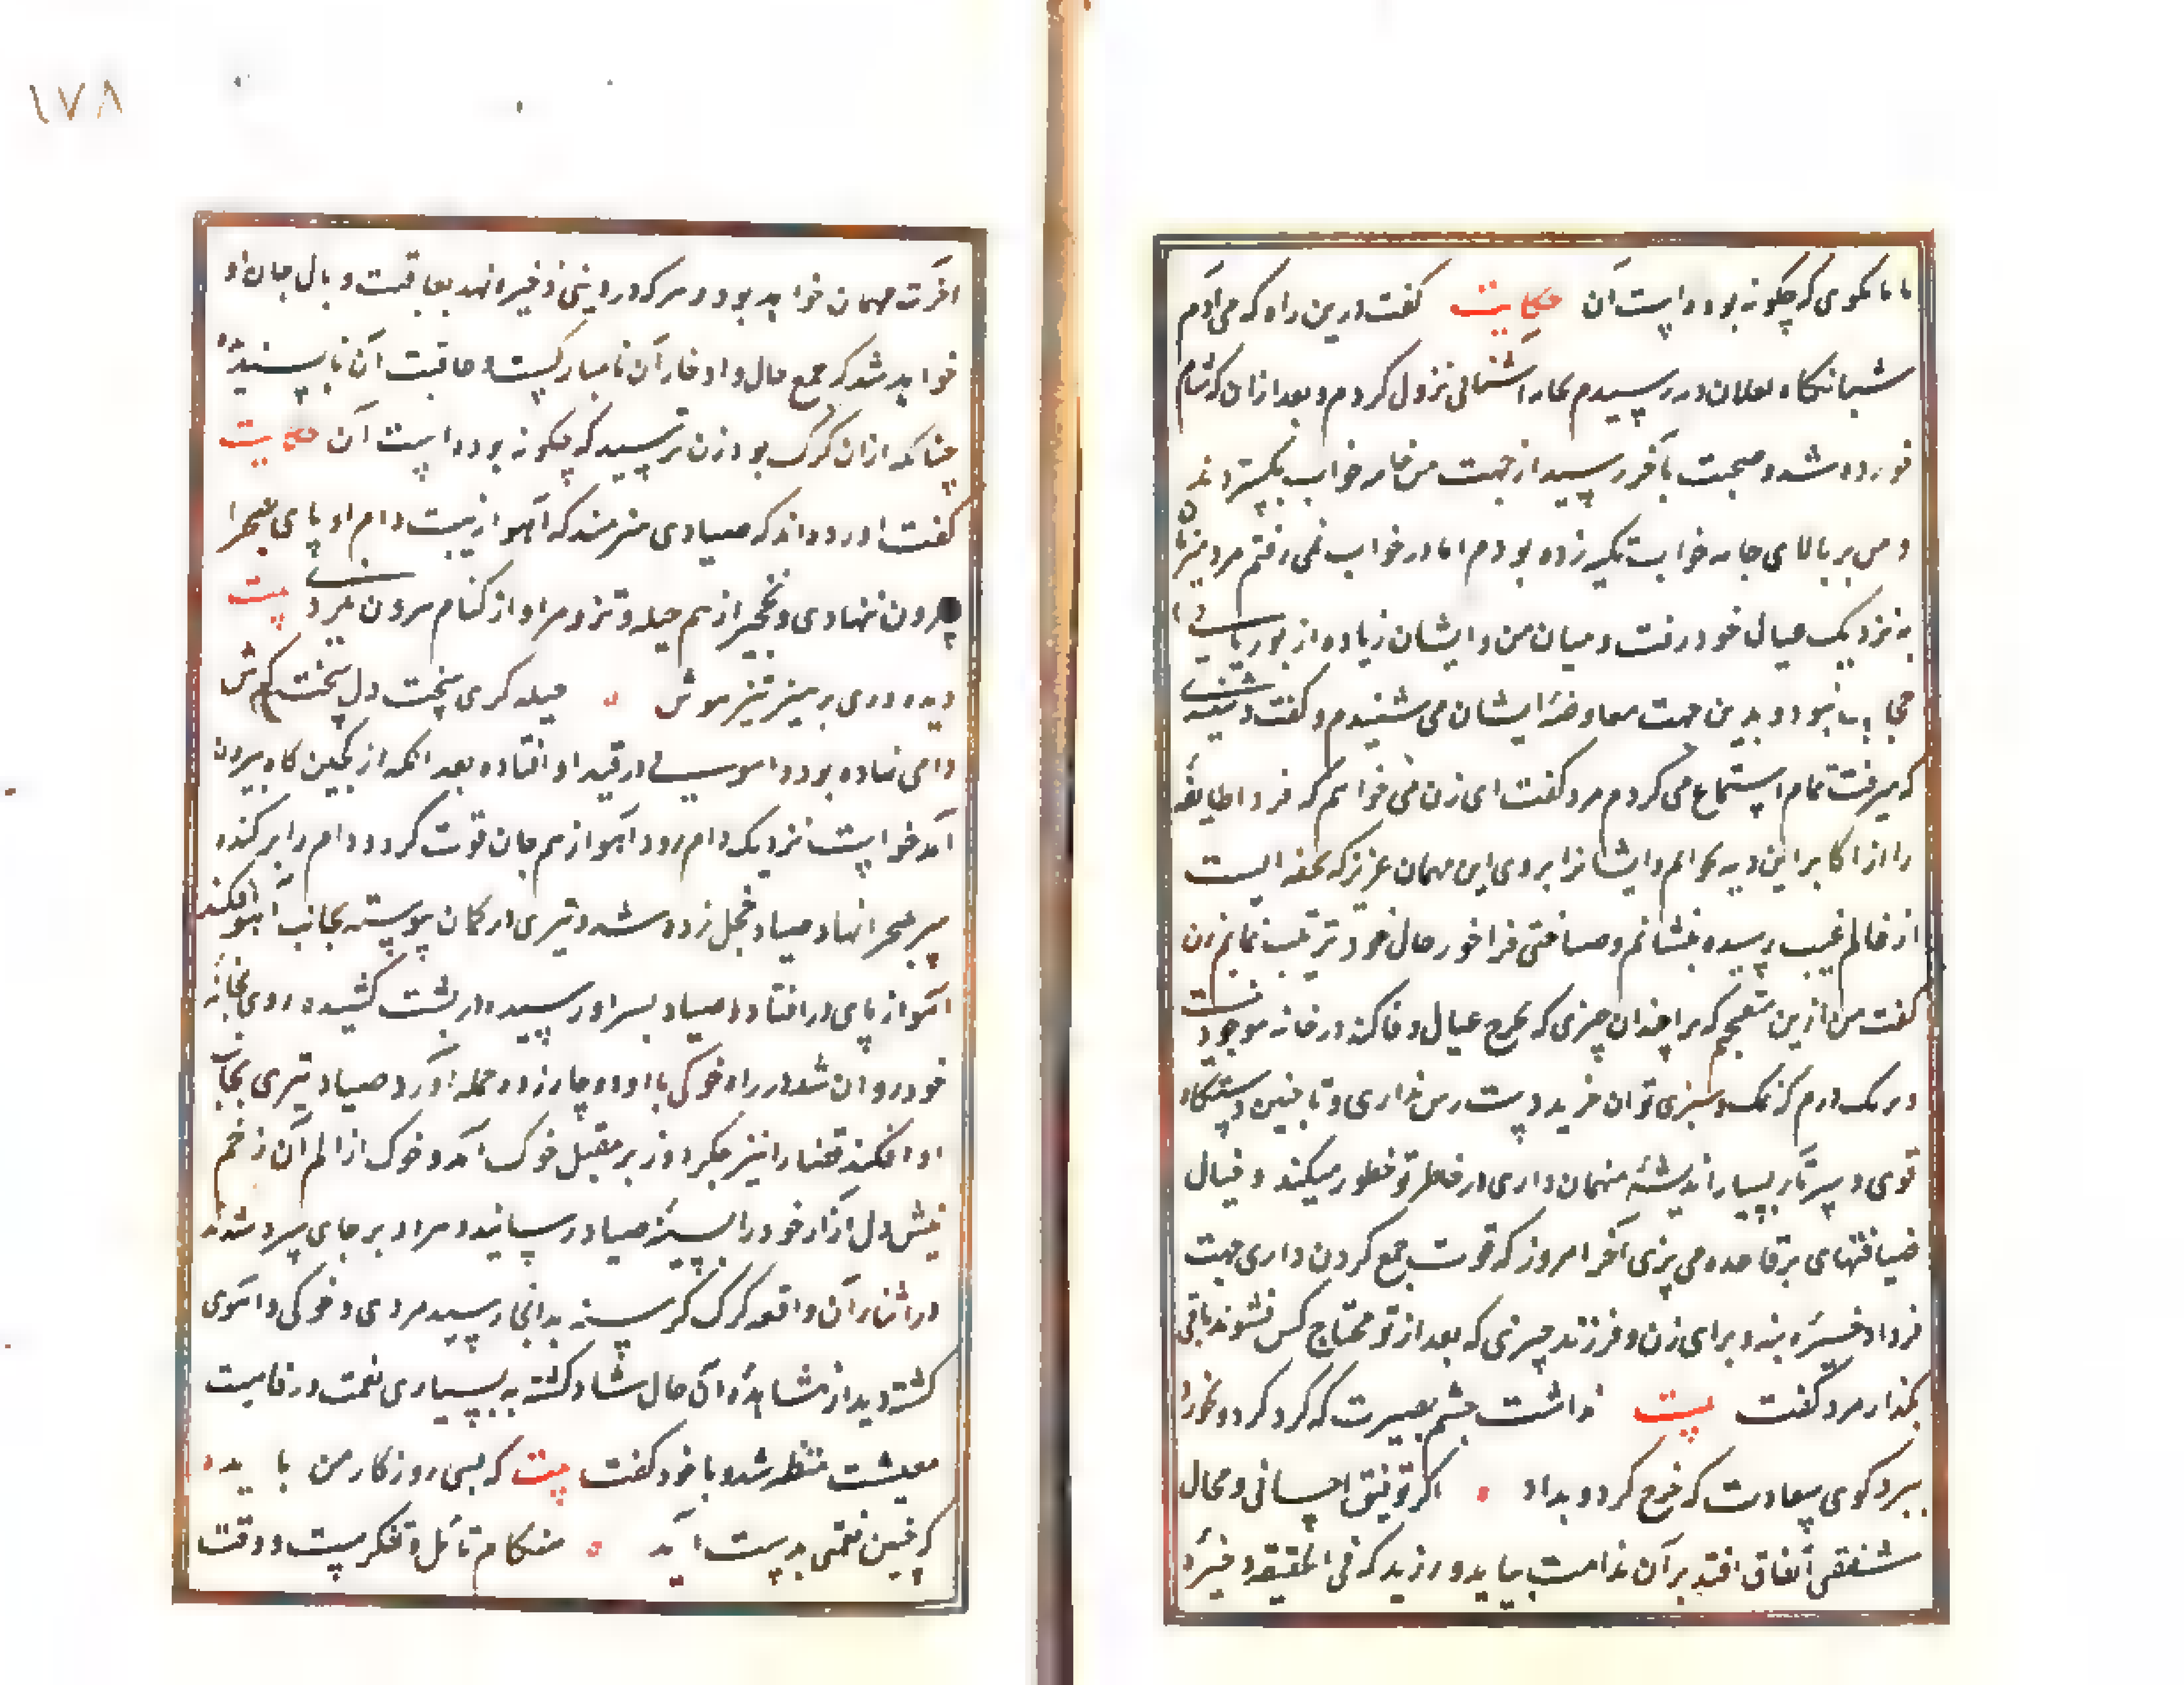 با ما بگوی که چگونه بوده است آن حکایت گفت درین راه که می آمدم
شبانگاه بفلان ده رسیدم بخانه آشنائی نزول کردم و بعد ازان که شام
خورده شد و صحبت بآخر رسید از جهت من جامه خواب بگستردند
و من بر بالای جامه خواب تکیه زده بودم اما در خواب نمی رفتم مرد میزبان
به نزدیک عیال خود رفت و میان من و ایشان زیاده از بوریائی
حجاب نبود و بدین جهت معاوضهٔ ایشان می شنیدم و گفت و شنیدی
که میرفت تمام استماع می کردم مرد گفت ای زن می خواهم که فردا طایفهٔ
را از اکابر این دیه بخوانم و ایشانرا بروی این مهمان عزیز که تحفه ایست
از عالم غیب رسیده بنشانم و ضیافتی فراخور حال خود ترتیب نمایم زن
گفت من ازین متعجبم که ترا چندان چیزی که بخرج عیال وفا کند در خانه موجود نیست
و بر یک درم که نمک و سبزی توان خرید دست رس نداری و با چنین دستگاه
قوی و بسیار اندیشهٔ مهمان داری در خاطر تو خطور میکند و خیال
ضیافتهای برقاعده می پزی آخر امروز که قوت جمع کردن داری جهت
فردا ذخیره بنه و برای زن و فرزند چیزی که بعد از تو محتاج کس نشوند باقی
بگذار مرد گفت بیت نداشت چشم بصیرت که گرد کرد و نخورد
ببرد گوی سعادت که خرج کرد و بداد اگر توفیق احسانی و مجال
شفقتی اتفاق افتد بر آن ندامت نباید ورزید که فی الحقیقه ذخیرهٔ
۱۷۸
آخرت همان خواهد بود و هرکه درا ذخیره نهد بعاقبت وبال جان او
خواهد شد که جمع مال و ادخار آن نامبارکست و عاقبت آن ناپسندیده
چنانکه ازان گرگ بود زن پرسید که چگونه بوده است آن حکایت
گفت آورده اند که صیادی هنرمند که آهو از نهیب دام او پای بصحرا
بیرون ننهادی و نخجیر از بیم حیله و تزویر او از کنام سر بیرون نکردی بیت
دیده وری تیز هوش حیله گری سخت دل سخت کوش
دامی نهاده بود و آهویی در قید او افتاده بعد آنکه از کمین گاه بیرون
آمد خواست نزدیک دام رود آهو از بیم جان قوت کرد و دام را برکنده
سر بصحرا نهاد صیاد خجل زده شد و تیری در کمان پیوسته بجانب آهو افکند
آهو از پای درافتاد و صیاد بسر او رسیده در پشت کشیده روی بخانه
خود روان شد در راه خوکی با او دوچار زده حمله آورد صیاد تیری بجانب
او افکند قضا را تیر جگر دوز بر مقتل خوک آمد و خوک از الم آن زخم
نیش دل آزار خود را بسینهٔ صیاد رسانید و هر دو بر جای سرد شدند
در اثناء آن واقعه گرگ گرسنه بدانجا رسید مردی و خوکی و آهوی
کشته دید از مشاهدهٔ آن حال شاد گشته به بسیاری نعمت و رفاهیت
معیشت مستظهر شد و با خود گفت بیت که بسی روزگار من باید
که چنین نعمتی بدست آید هنگام تامل و تفکرست و وقت